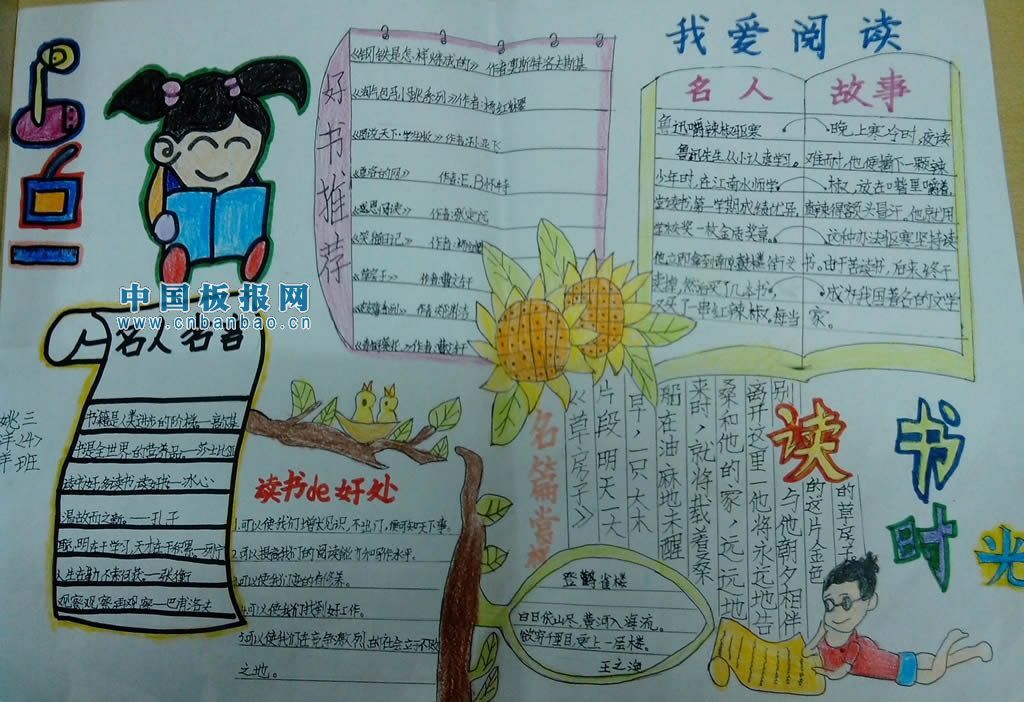 我爱阅读
好书推荐
《钢铁是怎样炼成的》 作者:奥斯特洛夫斯基
《淘气包马小跳系列》作者:杨红樱
作者:E.B怀特
《笑猫日记》 作者:杨红樱
作者:曹文轩
作者:曹文轩
名人 故事
鲁迅嚼辣椒驱寒
鲁迅先生从小认真学习。
少年时,在江南水师学
堂读书第一学期成绩优异,
学校奖一枚金质奖章。
他立即拿到南京鼓楼街头
卖掉,然后买了几本书,
又买了一串红辣椒。每当
晚上寒冷时,夜读
难耐时,他便摘下一颗辣
椒,放在嘴里嚼着,
直辣得额头冒汗。他就用
这种办法驱寒坚持读
书。由于苦读书,后来终于
成为我国著名的文学
家。
中国板报网
www.cnbanbao.cn
名人名言
书籍是人类进步的阶梯。—高尔基
书是全世界的营养品。—莎士比亚
读书好多读书读好书—冰心
温故而知新。——孔子
人生在勤不索何获—张衡
观察观察再观察—巴甫洛夫
三(4)班
读书de好处
1.可以使我们增长见识,不出门,便可知天下事。
2.可以提高我们的阅读能力和写作水平。
3.可以使我们变的有修养。
4.可以使我们找到好工作。
5.可以使我们在竞争激烈的社会立于不败
之地。
名篇赏析
《草房子》
片段 明天一大
早,一只大木
船在油麻地未醒
来时,就将载着桑
桑和他的家,远远地
离开这里—他将永远地告
别
与他朝夕相伴
的这片金色
的草房子
登鹳雀楼
白日依山尽,黄河入海流。
欲穷千里目,更上一层楼。
王之涣
读书时光